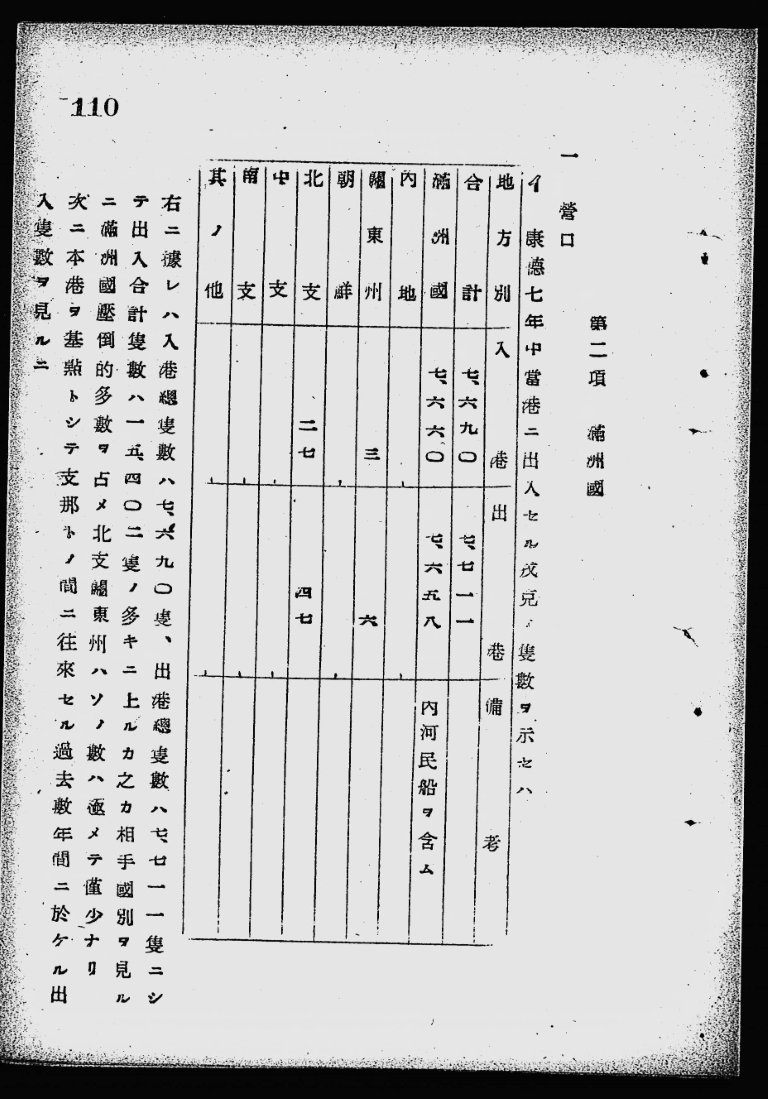 110
第二項 滿洲國
一 營口
イ 康德七年中當港ニ出入セル戎克ノ隻數ヲ示セハ
地方別 入港 出港 備考
合計 七、六九〇 七、七一一
滿洲國 七、六六〇 七、六五八 內河民船ヲ含ム
內地
關東州 三 六
朝鮮
北支 二七 四七
中支
南支
其ノ他
右ニ據レハ入港總隻數ハ七、六九〇隻、出港總隻數ハ七、七一一隻ニシ
テ出入合計隻數ハ一五、四〇二隻ノ多キニ上ルカ之カ相手國別ヲ見ル
ニ滿洲國壓倒的多數ヲ占メ北支關東州ハソノ數ハ極メテ僅少ナリ
次ニ本港ヲ基點トシテ支那トノ間ニ往來セル過去數年間ニ於ケル出
入隻數ヲ見ルニ